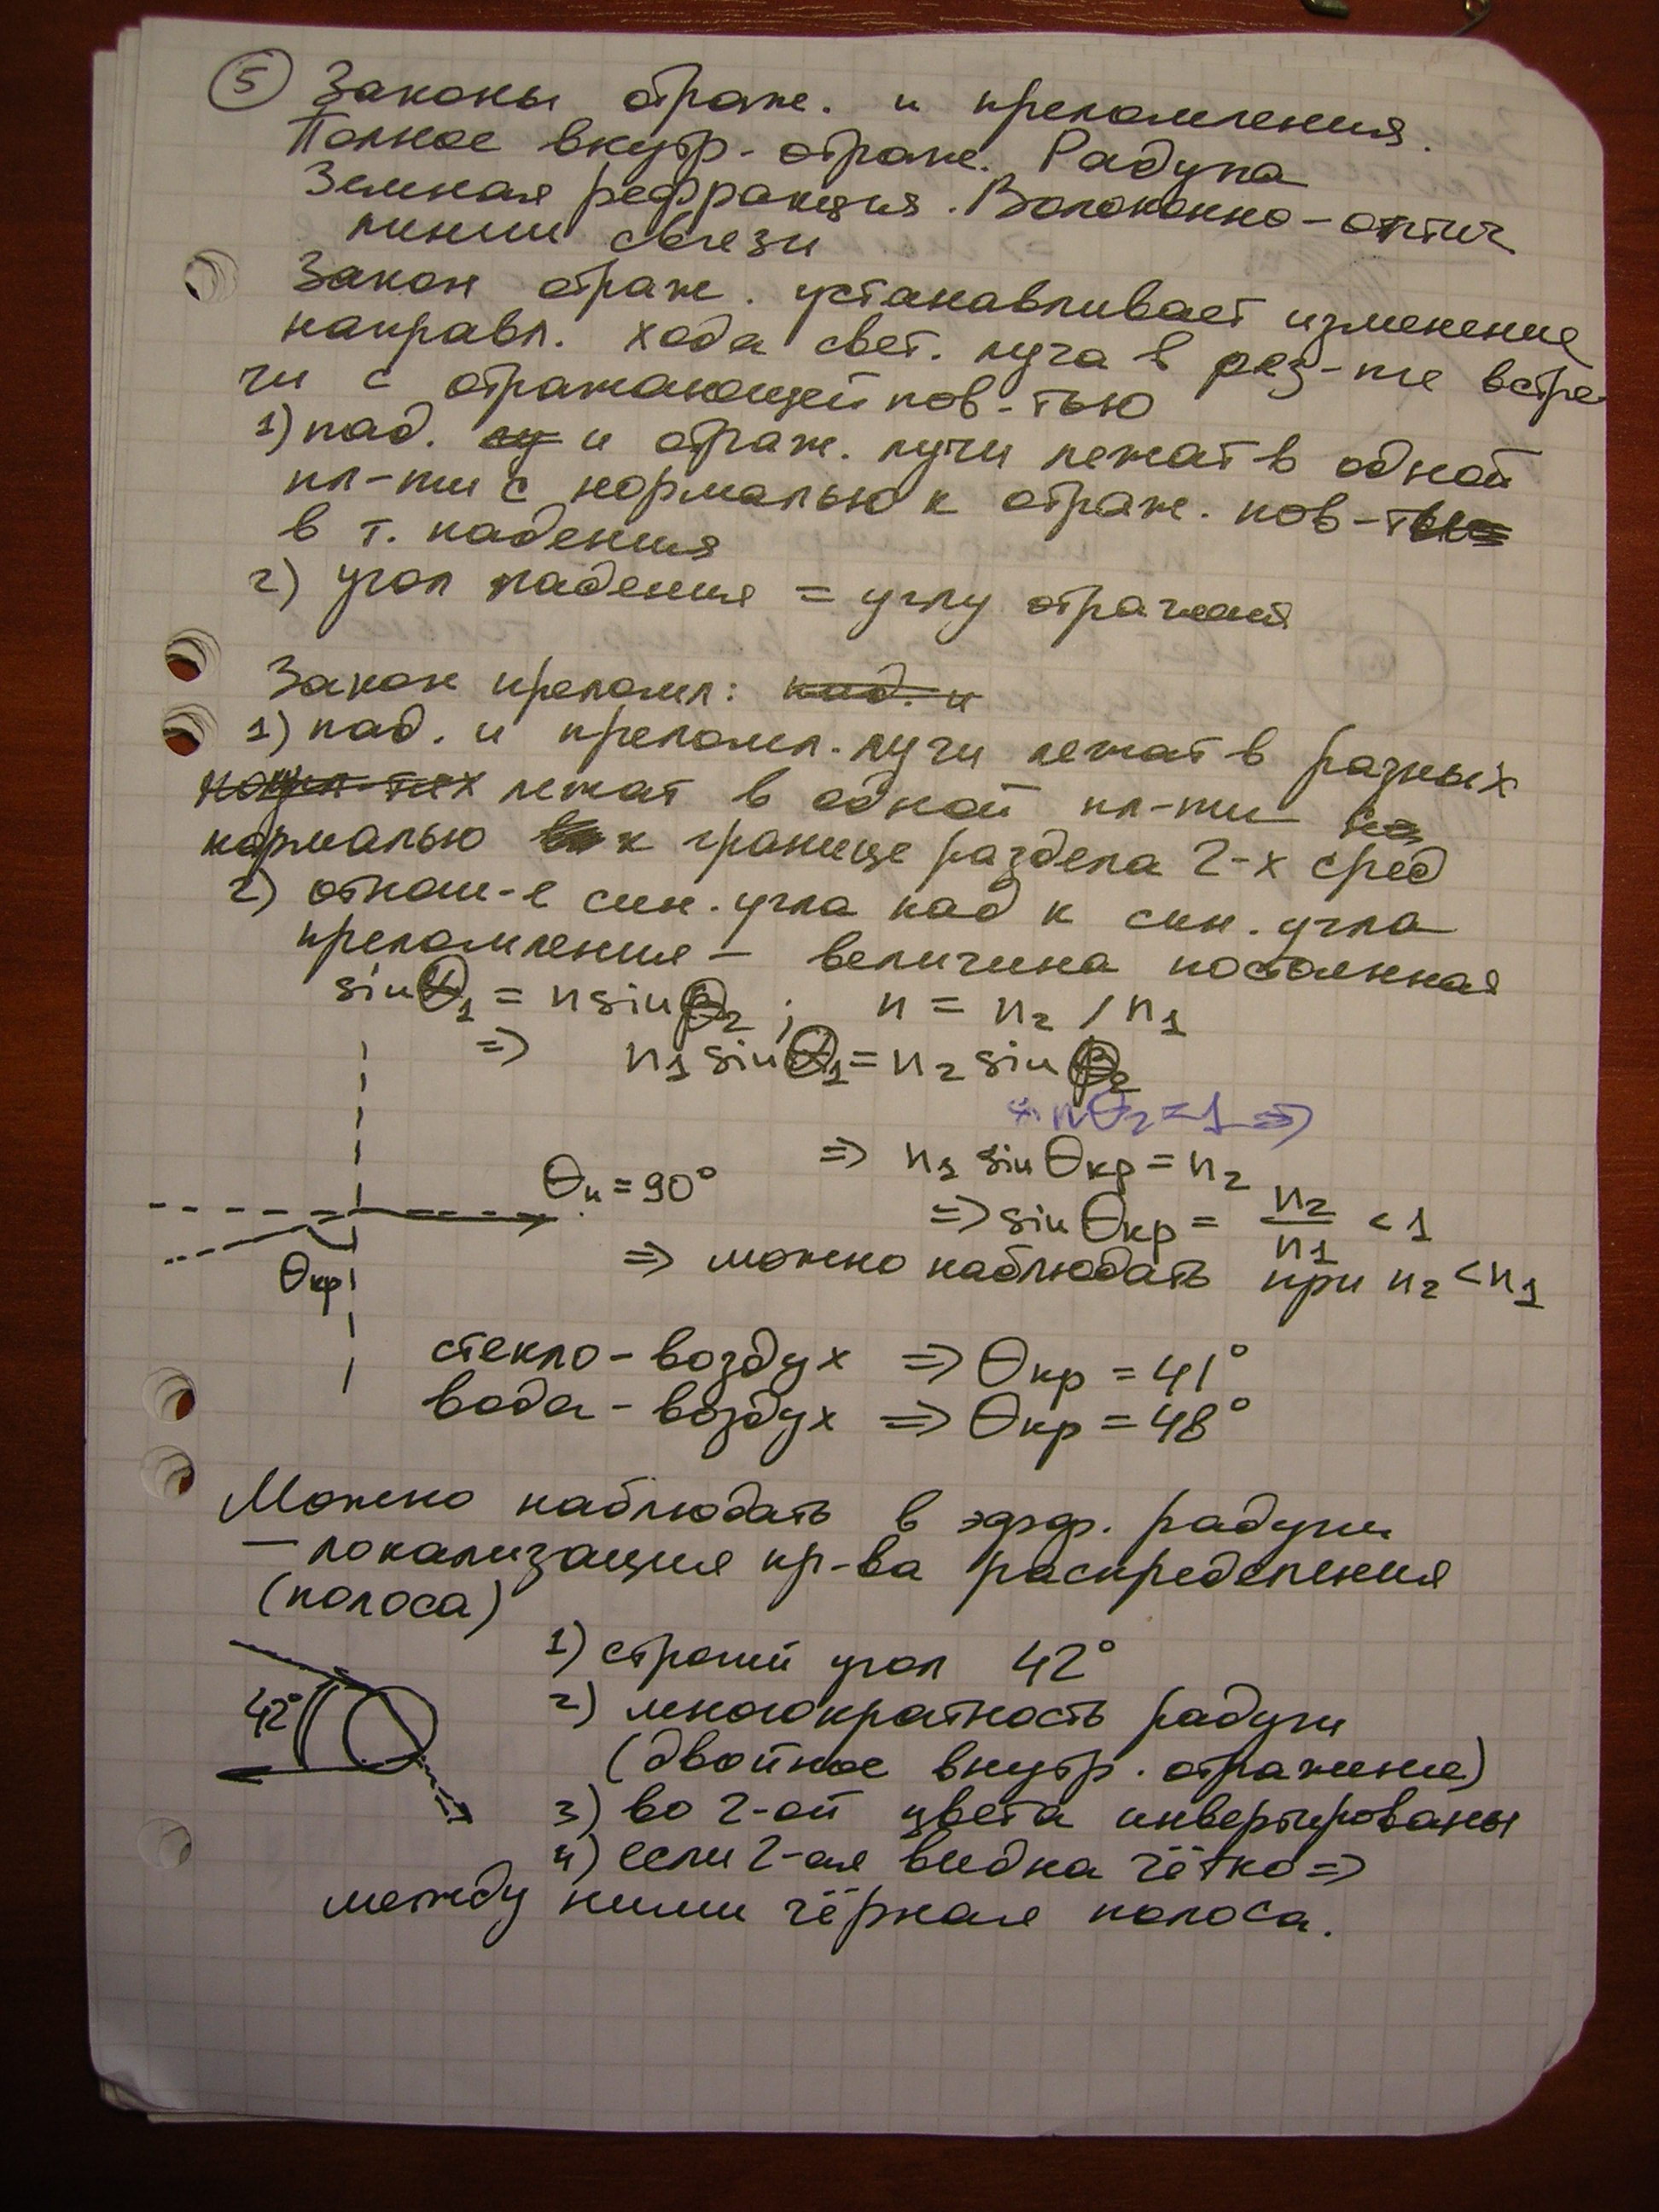 5 Законы отраж. и преломления.
Полное внутр. отраж. Радуга
Земная рефракция. Волоконно-оптич
линии связи
Закон отраж. устанавливает изменение
направл. хода свет. луча в рез-те встре
чи с отражающей пов-тью
1) пад. и отраж. лучи лежат в одной
пл-ти с нормалью к отраж. пов-
в т. падения
2) угол падения = углу отражения
Закон преломл: пад. и
1) пад. и преломл. лучи лежат в разных
лежат в одной пл-ти
нормалью к границе раздела 2-х сред
2) отнош-е син. угла пад к син. угла
преломления – величина постоянная
sinθ₁ = n sinθ₂ ; n = n₂ / n₁
=> n₁ sinθ₁ = n₂ sinθ₂
sinθ₂ = 1 =>
=> n₁ sinθкр = n₂
θп = 90°
=> sinθкр = n₂/n₁ < 1
θкр
=> можно наблюдать при n₂ < n₁
стекло – воздух => θкр = 41°
вода – воздух => θкр = 48°
Можно наблюдать в эфф. радуги
– локализация пр-ва распределения
(полоса)
1) строгий угол 42°
42°
2) многократность радуги
(двойное внутр. отражение)
3) во 2-ой цвета инвертированы
4) если 2-ая видна чётко =>
между ними чёрная полоса.